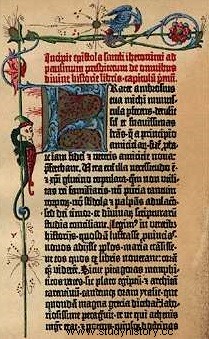 Incipit epistola sancti iheronimi ad
paulinum presbiterum de omnibus
divine historie libris. capitulū pmū.
Frater ambrosius
tua michi munus-
cula pferens. detulit
sil' et suavissimas
lrās. q̄ a principio
amiciciaꝝ. fidē pba-
te iam fidei et veteris amicicie nova:
pferebant. Vera enī illa necessitudo ē.
et xpi glutino copulata. qm̄ non utili-
tas rei familiaris. nō pn̄tia tantum
corpoꝝ. nō sbdola et palpās adulacō:
sed dei timor. et divinaꝝ scripturarū
studia conciliant. Legim⁹ in veterib⁹
historiis. quosdā lustrasse pvincias.
novos adisse pplos. maria trāsisse.
ut eos quos ex libris noverant: corā
qꝫ viderēt. Sicut pitagoras memphi-
ticos vates. sic plato egiptū. et architā
tarentinū. eandemqꝫ oram ytalie. que
quondā magna grecia dicebat: labo-
riosissime peragravit. et ut qui athenis
mgr̄ erat. et potens. cuiusqꝫ doctrinas
www.studyhistory.cc